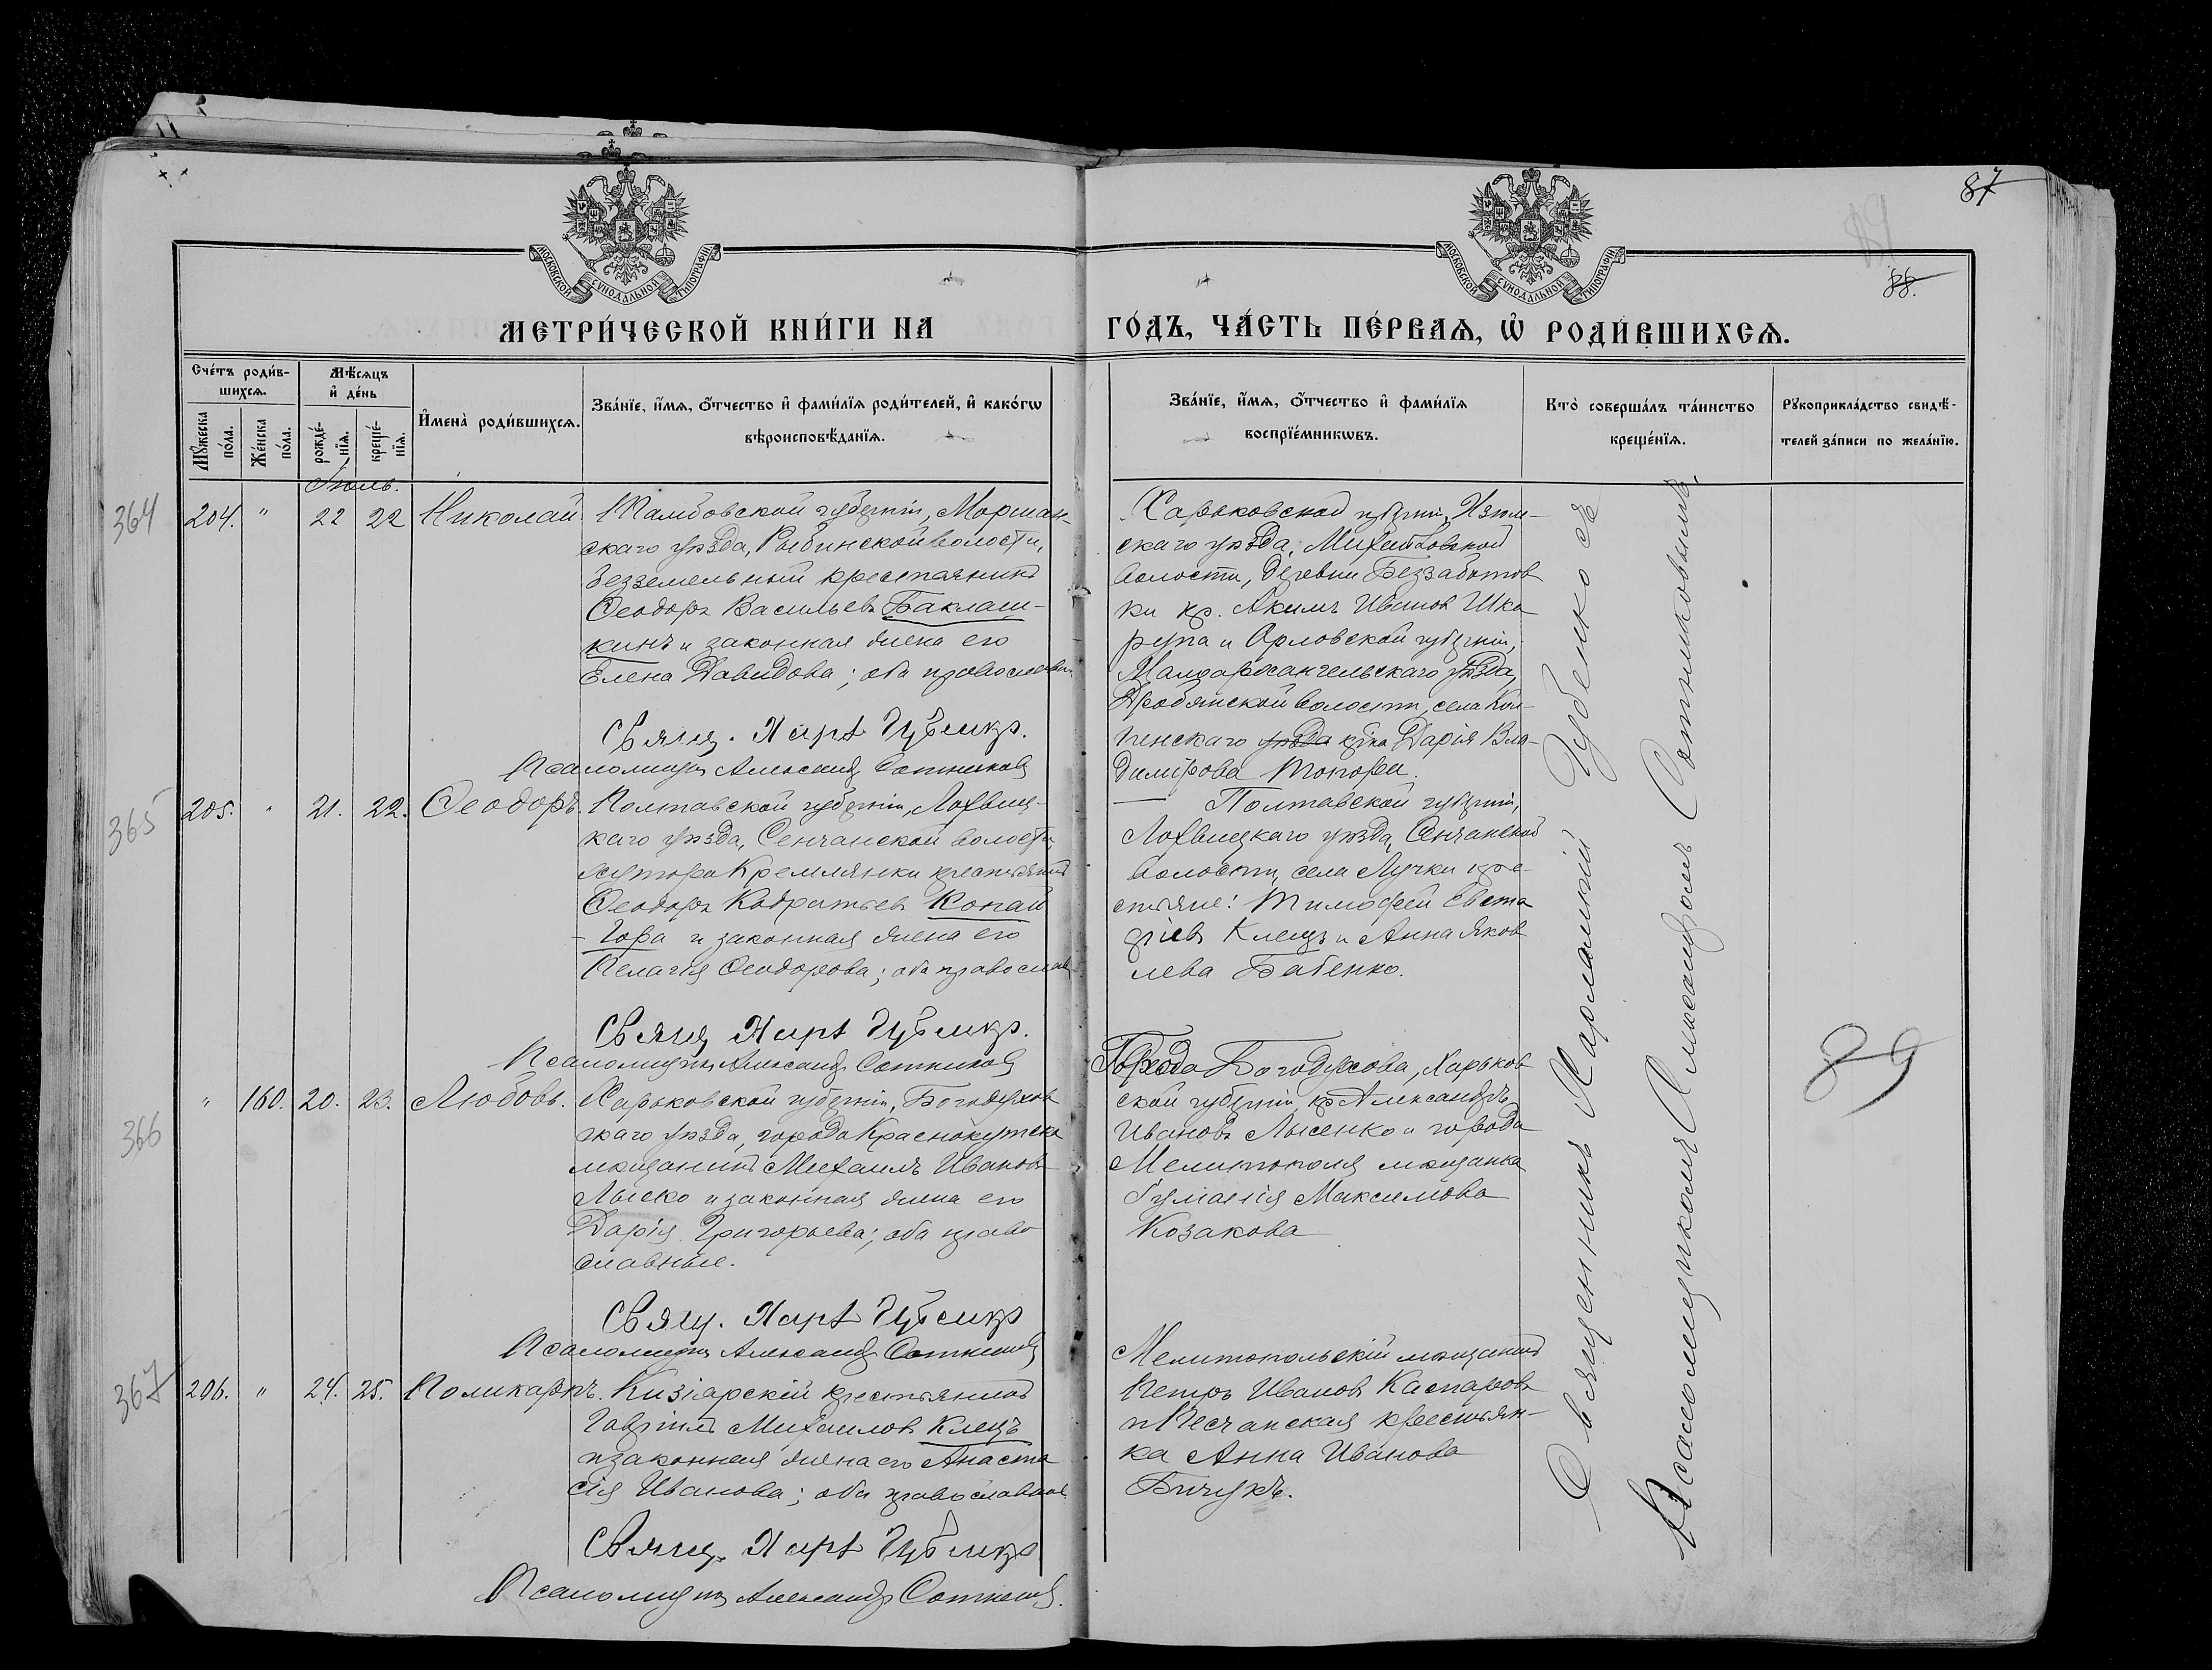 87
88.
МОСКОВСКОЙ СѴНОДАЛЬНОЙ ТИПОГРАФІИ
МОСКОВСКОЙ СѴНОДАЛЬНОЙ ТИПОГРАФІИ
МЕТРИ́ЧЕСКОЙ КНИ́ГИ НА
ГО́ДЪ, ЧА́СТЬ ПЕ́РВАѦ, Ѡ҆ РОДИ́ВШИХСѦ.
Сче́тъ роди́в-
шихсѧ.
Мꙋ́жеска
по́ла.
Же́нска
по́ла.
Мѣ́сѧцъ
и҆ де́нь
рожде́-
нїѧ.
креще́-
нїѧ.
И҆мена̀ роди́вшихсѧ.
Зва́нїе, и҆́мѧ, ѻ҆́тчество и҆ фами́лїѧ роди́телей, и҆ како́гѡ
вѣроисповѣ́данїѧ.
Зва́нїе, и҆́мѧ, ѻ҆́тчество и҆ фами́лїѧ
воспрїе́мникѡвъ.
Кто̀ соверша́лъ та́инство
креще́нїѧ.
Рꙋкоприкла́дство свидѣ́-
телей за́писи по жела́нїю.
Іюль.
364
204. " 22 22 Николай
Тамбовской губерніи, Моршан-
скаго уѣзда, Рыбинской волости,
безземельный крестьянинъ
Ѳеодоръ Васильевъ Баклаш-
кинъ и законная жена его
Елена Давидова; оба православн
Свящ. Харл. Губенко.
Псаломщикъ Александръ Сотниковъ
Харьковской губерніи, Изюм-
скаго уѣзда, Михайловской
волости, деревни Беззаботов
ки кр. Акимъ Иванов Шка
рупа и Орловской губерніи,
Малоархангельскаго уѣзда,
Дробянской волости, села Кол-
пенскаго уѣзда крка Дарія Вла-
димірова
365
205. " 21. 22. Ѳеодоръ.
Полтавской губерніи, Лохвиц-
каго уѣзда, Сенчанской волости,
хутора Кремлянки крестьянинъ
Ѳеодоръ Кодратьевъ Копай
-Гора и законная жена его
Пелагія Ѳеодорова; оба православ
Свящ. Харл. Губенко.
Псаломщикъ Александръ Сотниковъ
Полтавской губерніи,
Лохвицкаго уѣзда, Сенчанской
волости, села Лучки кре-
стьяне: Тимоѳей Евста
фіевъ Клецъ и Анна Яков
лева Бабенко.
366
" 160. 20. 23. Любовь.
Харьковской губерніи, Богодухов
скаго уѣзда, города Краснокутска
мѣщанинъ Михаилъ Ивановъ
Лыско и законная жена его
Дарія Григорьева; оба право
славные.
Свящ. Харл. Губенко
Псаломщикъ Александръ Сотниковъ
Города Богодухова, Харьков
ской губерніи кр Александръ
Ивановъ Лысенко и города
Мелитополя мѣщанка
Максимова
Козакова
367
206. " 24. 25. Поликарпъ.
Кизіярскій крестьянинъ
Гавріилъ Михаиловъ Клецъ
и законная жена его Анаста
сія Иванова; оба православные
Свящ. Харл. Губенко
Псаломщикъ Александръ Сотниковъ.
Мелитопольскій мѣщанинъ
Петръ Ивановъ Каспаровъ
и Песчанская крестьян-
ка Анна Иванова
Бичукъ.
Священникъ Харлампій Губенко съ
Псаломщикомъ Александромъ Сотниковымъ.
89